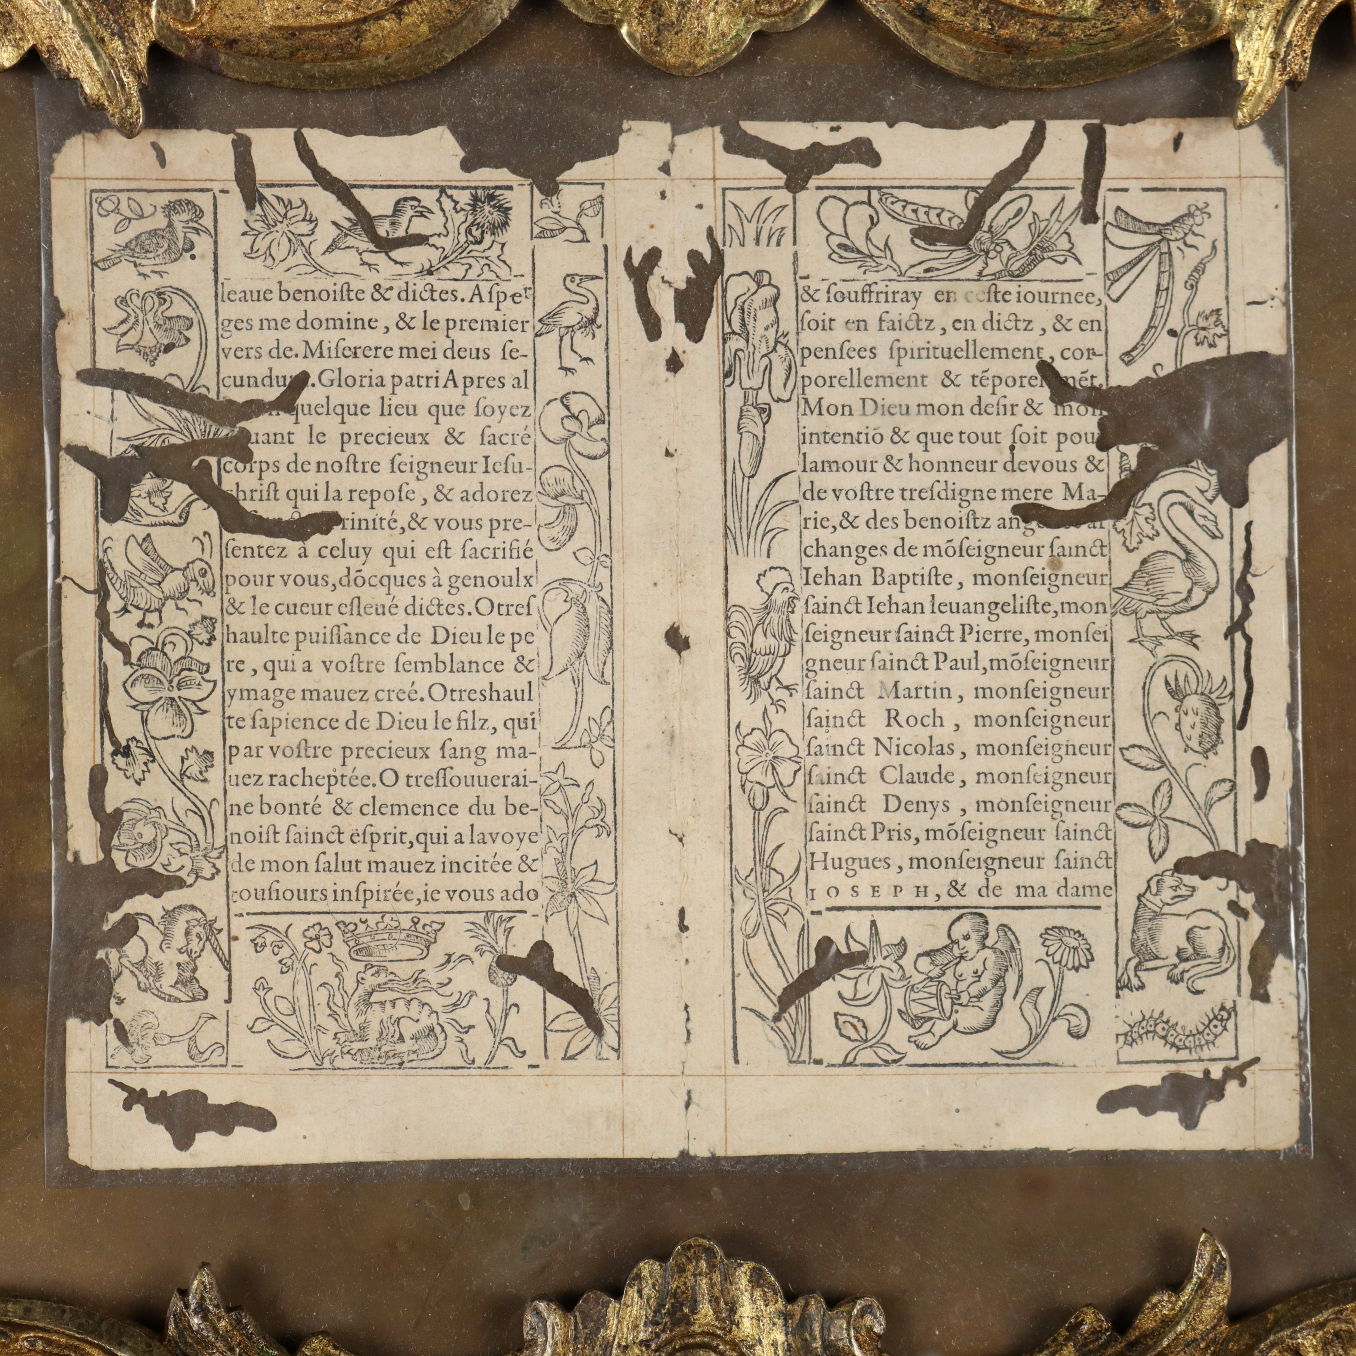 leaue benoiſte & dictes. Aſper
ges me domine, & le premier
vers de. Miſerere mei deus ſe-
cundu .Gloria patri Apres al
quelque lieu que ſoyez
uant le precieux & ſacré
corps de noſtre ſeigneur Ieſu-
chriſt qui la repoſe, & adorez
rinité,& vous pre-
ſentez à celuy qui eſt ſacrifié
pour vous,dōcques à genoulx
& le cueur eſleué dictes. O treſ
haulte puiſſance de Dieu le pe
re, qui a voſtre ſemblance &
ymage mauez creé. Otreshaul
te ſapience de Dieu le filz, qui
par voſtre precieux ſang ma-
uez racheptée. O treſſouuerai-
ne bonté & clemence du be-
noiſt ſainct eſprit, qui a lavoye
de mon ſalut mauez incitée &
touſiours inſpirée,ie vous ado
& ſouffriray en ceſte iournee,
ſoit en faictz, en dictz, & en
penſees ſpirituellement, cor-
porellement &
Mon Dieu mon deſir & mon
intentiō & que tout ſoit pou
lamour & honneur devous &
de voſtre treſdigne mere Ma-
rie,& des benoiſtz
changes de mōſeigneur ſainct
Iehan Baptiſte, monſeigneur
ſainct Iehan leuangeliſte,mon
ſeigneur ſainct Pierre, monſei
gneur ſainct Paul,mōſeigneur
ſainct Martin, monſeigneur
ſainct Roch, monſeigneur
ſainct Nicolas, monſeigneur
ſainct Claude, monſeigneur
ſainct Denys, monſeigneur
ſainct Pris, mōſeigneur ſainct
Hugues, monſeigneur ſainct
IOSEPH,& de ma dame